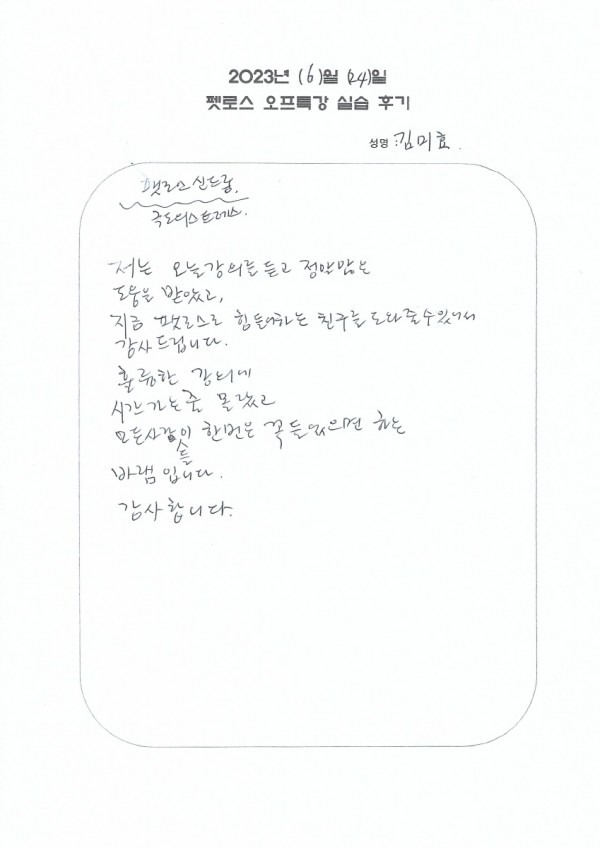 2023년 (6)월 (24)일
펫로스 오프특강 실습 후기
성명 : 김미효.
팻로스신드롬.
극도의스트레스.
저는 오늘강의를듣고 정말많은
도움을 받았고,
지금 팻로스로 힘들어하는 친구를도와줄수있어서
감사드립니다.
훌륭한 강의에
시간가는줄 몰랐고
모든사람들이 한번은 꼭들었으면 하는
바램입니다.
감사합니다.